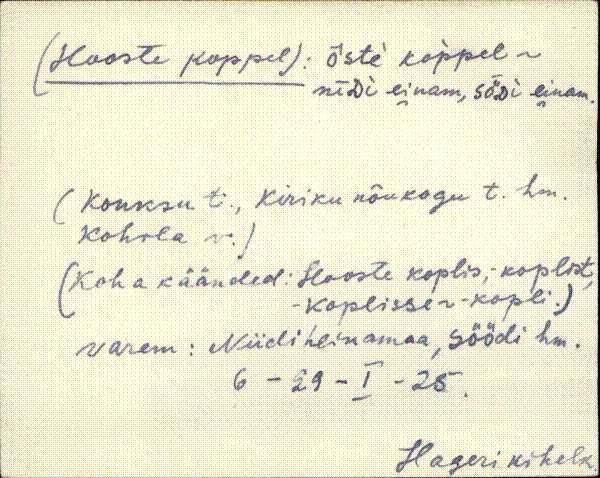 (Hooste koppel): ȫsté koppel ~
nīᴅì einam, sȫᴅì einam.
(Konksu t., Kiriku nõukogu t. hm.
Kohila v.)
(Koha käänded: Hooste koplis, -koplist,
-koplisse ~ -kopli.)
varem: Niidiheinamaa, Söödi hm.
6 - 29 - I - 25.
Hageri kihelk.